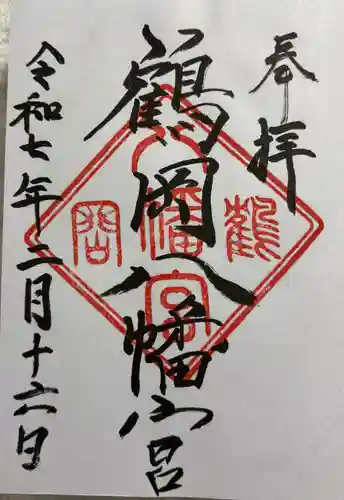 奉拝
鶴岡八幡宮
令和七年二月十六日
鶴
八幡宮
岡